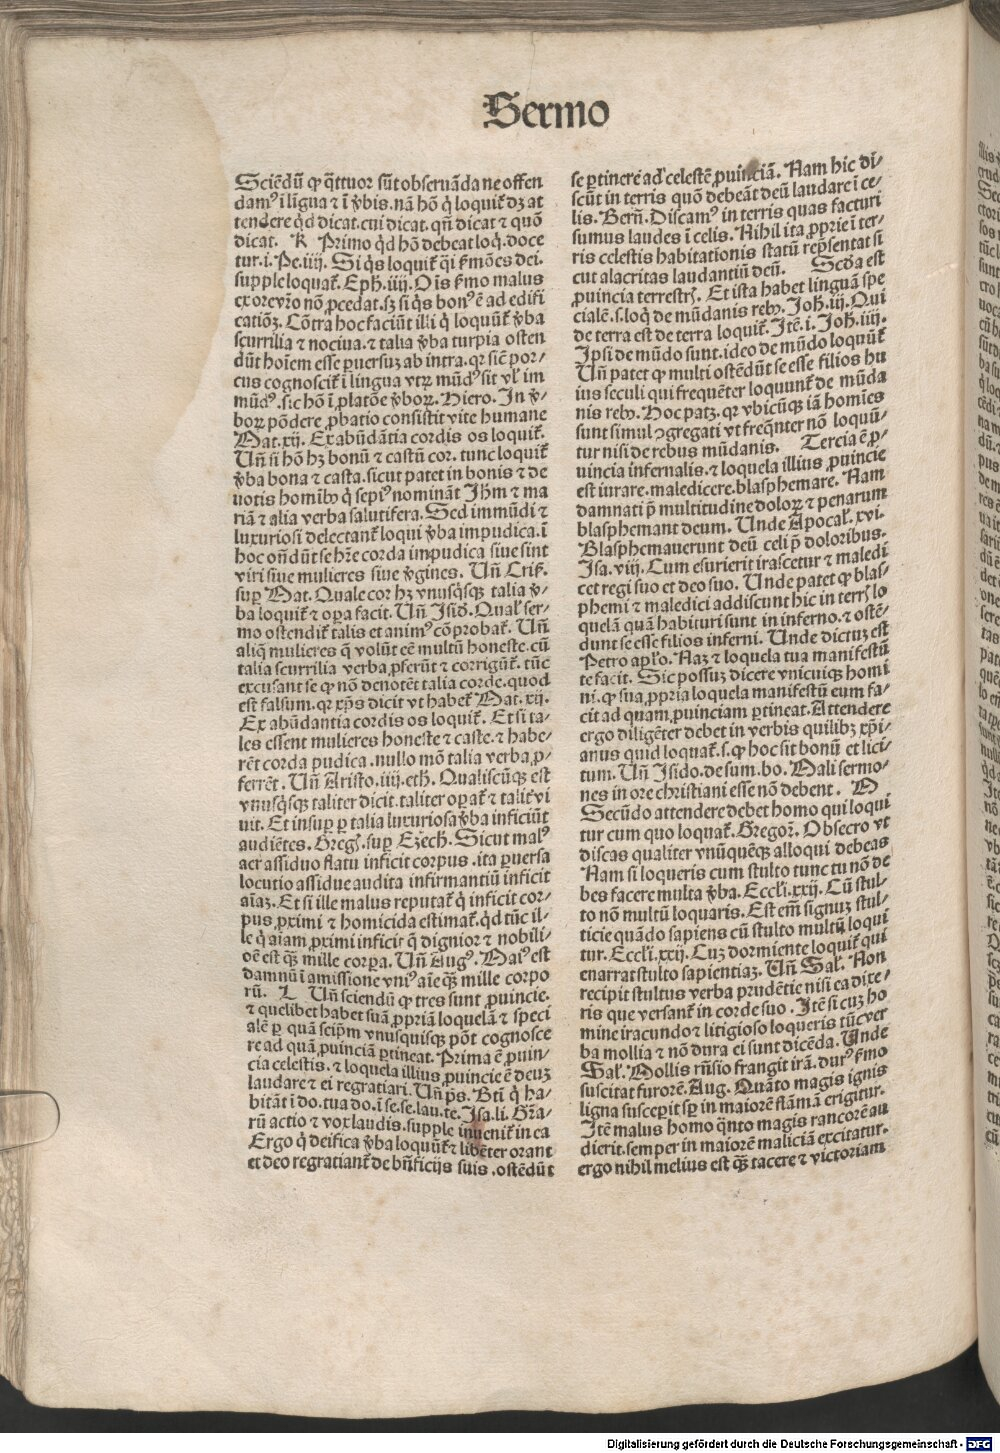 Sermo
Sciēdū ꝙ q̄ttuor sūt obseruāda ne offen
damꝰ ī līgua ⁊ ī v̄bis. nā hō q̇ loquit̄ dꝫ at
tendere qd̓ dicat. cui dicat. qn̄ dicat ⁊ quō
dicat. K Primo qd̓ hō debeat loq̇. doce
tur. i. Pe. iiij. Si q̇s loquit̄ q̄si s̄mōes dei.
supple loquat̄. Eph̓. iiij. Ois s̄mo malus
ex ore vr̄o nō ꝓcedat. sꝫ si q̇s bonꝰ ē ad edifi
catiōꝫ. Cōtra hoc faciūt illi q̇ loquūt̄ v̄ba
scurrilia ⁊ nociua. ⁊ talia v̄ba turpia osten
dūt hoīem esse ꝑuersuꝫ ab intra. qꝛ sic̄ por⸗
cus cognoscit̄ ī lingua vtrꝫ mūdꝰ sit vl̓ im
mūdꝰ. sic hō ī platōe v̄boꝝ. Hiero. In v̄⸗
boꝝ pōdere ꝓbatio consistit vite humane
Mat. xij. Ex abūdātia cordis os loquit̄.
Un̄ si hō hꝫ bonū ⁊ castū cor. tunc loquit̄
v̄ba bona ⁊ casta. sicut patet in bonis ⁊ de
uotis homībꝰ q̇ sepiꝰ nomināt Jhm̄ ⁊ ma
riā ⁊ alia verba salutifera. Sed immūdi ⁊
luxuriosi delectant̄ loqui v̄ba impudica. ī
hoc on̄dūt se hr̄e corda impudica siue sint
viri siue mulieres siue v̄gines. Un̄ Cris̄.
suꝑ Mat. Quale cor hꝫ vnusq̇sqꝫ talia v̄⸗
ba loquit̄ ⁊ oꝑa facit. Un̄ Isid̓. Qual̓ ser⸗
mo ostendit̄ talis et animꝰ cōprobat̄. Un̄
aliq̄ mulieres q̄ volūt eē multū honeste. cū
talia scurrilia verba ꝓferūt ⁊ corrigūt̄. tūc
excusant se ꝙ nō denotēt talia corde. quod
est falsum. qꝛ xp̄s dicit vt habet̄ Mat. xij.
Ex abūdantia cordis os loquit̄. Et si ta⸗
les essent mulieres honeste ⁊ caste. ⁊ habe⸗
rēt corda pudica. nullo mō talia verba ꝓ⸗
ferrēt. Un̄ Aristo. iiij. eth̓. Qualiscūqꝫ est
vnusq̇sqꝫ taliter dicit. taliter oꝑat̄ ⁊ talit̓ vi
uit. Et insuꝑ ꝑ talia luxuriosa v̄ba inficiūt
audiētes. Greg̓. suꝑ Ezech. Sicut malꝰ
aer assiduo flatu inficit corpus. ita ꝑuersa
locutio assidue audita infirmantiū inficit
aīaꝫ. Et si ille malus reputat̄ q̇ inficit cor⸗
pus ꝓximi ⁊ homicida estimat̄. qd̓ tūc il⸗
le q̇ aīam ꝓximi inficit q̄ dignior ⁊ nobili⸗
or̄ est qꝫ mille corꝑa. Un̄ Augꝰ. Maiꝰ est
damnū ī amissione vniꝰ aīe qꝫ mille corpo
rū. L Un̄ sciendū ꝙ tres sunt ꝓuincie.
⁊ quelibet habet suā ꝓpriā loquelā ⁊ speci
alē ꝑ quā seip̄m vnusquisqꝫ pōt cognosce
re ad quā ꝓuinciā ꝑtineat. Prima ē ꝓuin⸗
cia celestis. ⁊ loquela illius ꝓuincie ē deuꝫ
laudare ⁊ ei regratiari. Un̄ p̄s. Bt̄i q̇ ha⸗
bitāt ī do. tua do. ī se. se. lau. te. Isa. li. Gr̄a⸗
rū actio ⁊ vox laudis. supple inuenit̄ in ea
Ergo q̇ deifica v̄ba loquūt̄ ⁊ libēter orant
et deo regratiant̄ de bn̄ficijs suis. ostēdūt
se ꝑtinere ad celestē ꝓuinciā. Nam hic di⸗
scūt in terris quō debeāt deū laudare ī ce⸗
lis. Bern̄. Discamꝰ in terris quas facturi
sumus laudes ī celis. Nihil ita ꝓprie ī ter⸗
ris celestis habitationis statū rep̄sentat si
cut alacritas laudantiū deū. Scd̓a est
ꝓuincia terrestrꝭ. Et ista habet linguā spe
cialē. s. loq̇ de mūdanis rebꝰ. Joh̓. iij. Qui
de terra est de terra loquit̄. Itē. i. Joh̓. iiij.
Ipsi de mūdo sunt. ideo de mūdo loquūt̄
Un̄ patet ꝙ multi ostēdūt se esse filios hu
ius seculi qui frequēter loquunt̄ de mūda
nis rebꝰ. Hoc patꝫ. qꝛ vbicūqꝫ iā homīes
sunt simul ꝯgregati vt freq̄nter nō loquū⸗
tur nisi de rebus mūdanis. Tercia ē ꝓ⸗
uincia infernalis. ⁊ loquela illius ꝓuincie
est iurare. maledicere. blasphemare. Nam
damnati p̄ multitudine doloꝝ ⁊ penarum
blasphemant deum. Unde Apocal̓. xvi.
Blasphemauerunt deū celi p̄ doloribus.
Isa. viij. Cum esurierit irascetur ⁊ maledi
cet regi suo et deo suo. Unde patet ꝙ blas⸗
phemi ⁊ maledici addiscunt hic in terrꝭ lo
quelā quā habituri sunt in inferno. ⁊ ostē⸗
dunt se esse filios inferni. Unde dictuꝫ est
Petro apl̓o. Naꝫ ⁊ loquela tua manifestū
te facit. Sic possuꝫ dicere vnicuiqꝫ homi
ni. ꝙ sua ꝓpria loquela manifestū eum fa⸗
cit ad quam ꝓuinciam ꝑtineat. Attendere
ergo diligēter debet in verbis quilibꝫ xp̄i⸗
anus quid loquat̄. s. ꝙ hoc sit bonū et lici⸗
tum. Un̄ Isido. de sum. bo. Mali sermo⸗
nes in ore christiani esse nō debent. M
Secūdo attendere debet homo qui loqui
tur cum quo loquat̄. Gregor̄. Obsecro vt
discas qualiter vnūquēqꝫ alloqui debeas
Nam si loqueris cum stulto tunc tu nō de
bes facere multa v̄ba. Eccl̓i. xxij. Cū stul⸗
to nō multū loquaris. Est em̄ signuꝫ stul⸗
ticie quādo sapiens cū stulto multū loqui
tur. Eccl̓i. xxij. Cuꝫ dormiente loquit̄ qui
enarrat stulto sapientiaꝫ. Un̄ Sal̓. Non
recipit stultus verba prudētie nisi ea dixe⸗
ris que versant̄ in corde suo. Itē si cuꝫ ho
mine iracundo ⁊ litigioso loqueris tūc ver
ba mollia ⁊ nō dura ei sunt dicēda. Unde
Sal̓. Mollis rn̄sio frangit irā. durꝰ s̄mo
suscitat furorē. Aug. Quāto magis ignis
ligna susceꝑit sꝑ in maiorē flāmā erigitur.
Itē malus homo q̄nto magis rancorē au
dierit. semper in maiorē maliciā excitatur.
ergo nihil melius est qꝫ tacere ⁊ victoriam
Digitalisierung gefördert durch die Deutsche Forschungsgemeinschaft - DFG